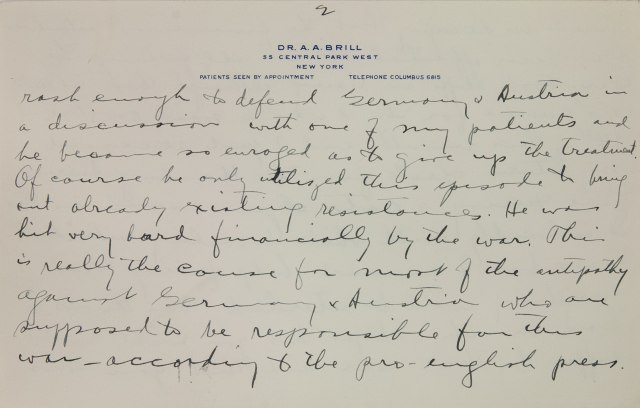 2
DR. A. A. BRILL
55 CENTRAL PARK WEST
NEW YORK
PATIENTS SEEN BY APPOINTMENT TELEPHONE COLUMBUS 6815
rash enough to defend Germany & Austria in
a discussion with one of my patients and
he became so enraged as to give up the treatment.
Of course he only utilized this episode to bring
out already existing resistances. He was
hit very hard financially by the war. This
is really the cause for most of the antipathy
against Germany & Austria who are
supposed to be responsible for this
war – according to the pro-english press.